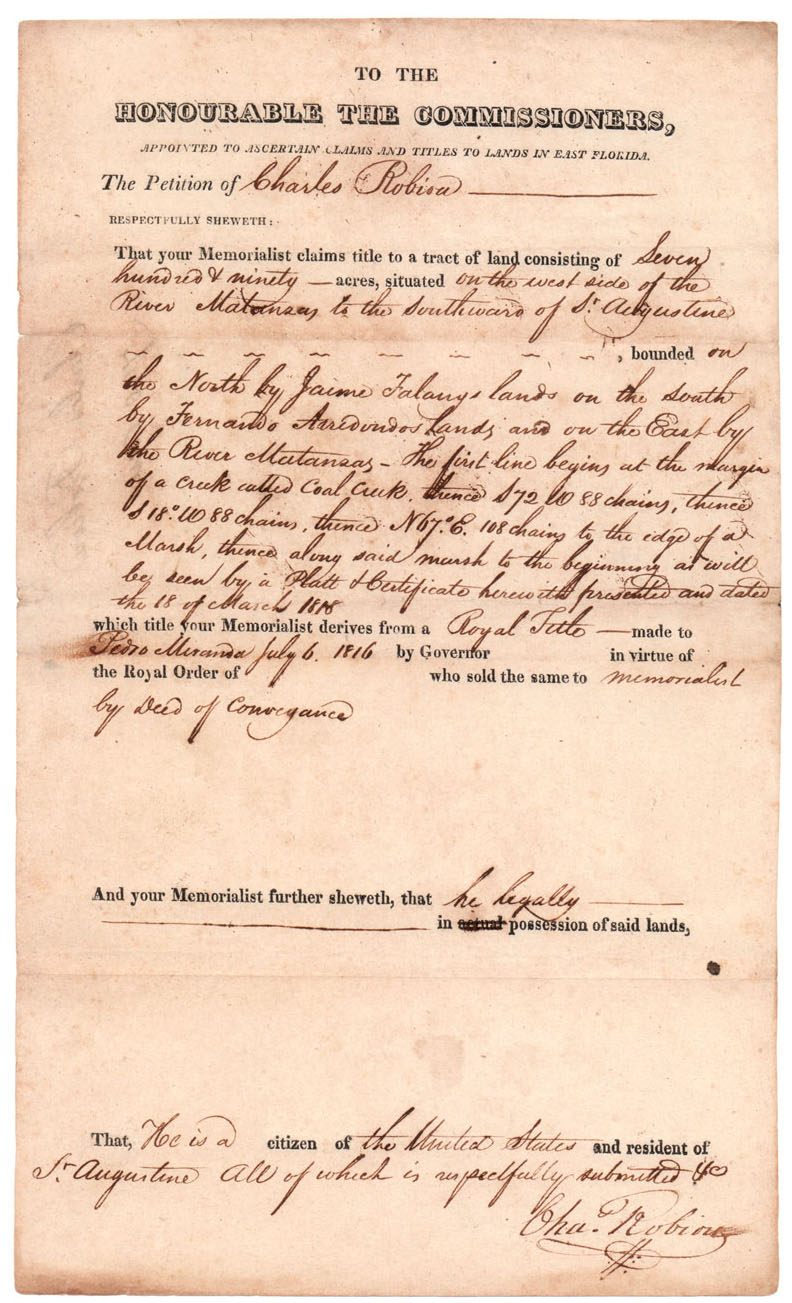 TO THE
HONOURABLE THE COMMISSIONERS,
APPOINTED TO ASCERTAIN CLAIMS AND TITLES TO LANDS IN EAST FLORIDA.
The Petition of Charles Robiou
RESPECTFULLY SHEWETH:
That your Memorialist claims title to a tract of land consisting of Seven
hundred & ninety — acres, situated on the west side of the
River Matansas to the southward of St. Augustine
, bounded on
the North by Jaime Falanys lands on the south
by Fernando Arredondos Lands and on the East by
the River Matansas – The first line begins at the margin
of a creek called Coal Creek, thence S 72 W 88 chains, thence
S 18° W 88 chains, thence N 67° E. 108 chains to the edge of a
Marsh, thence along said marsh to the beginning as will
be seen by a Platt & Certificate herewith presented and dated
the 18 of March 1818
which title your Memorialist derives from a Royal Title — made to
Pedro Miranda July 6. 1816 by Governor in virtue of
the Royal Order of who sold the same to memorialist
by Deed of Conveyance
And your Memorialist further sheweth, that he legally
in actual possession of said lands,
That, He is a citizen of the United States and resident of
St. Augustine All of which is respectfully submitted &c
Chas. Robiou